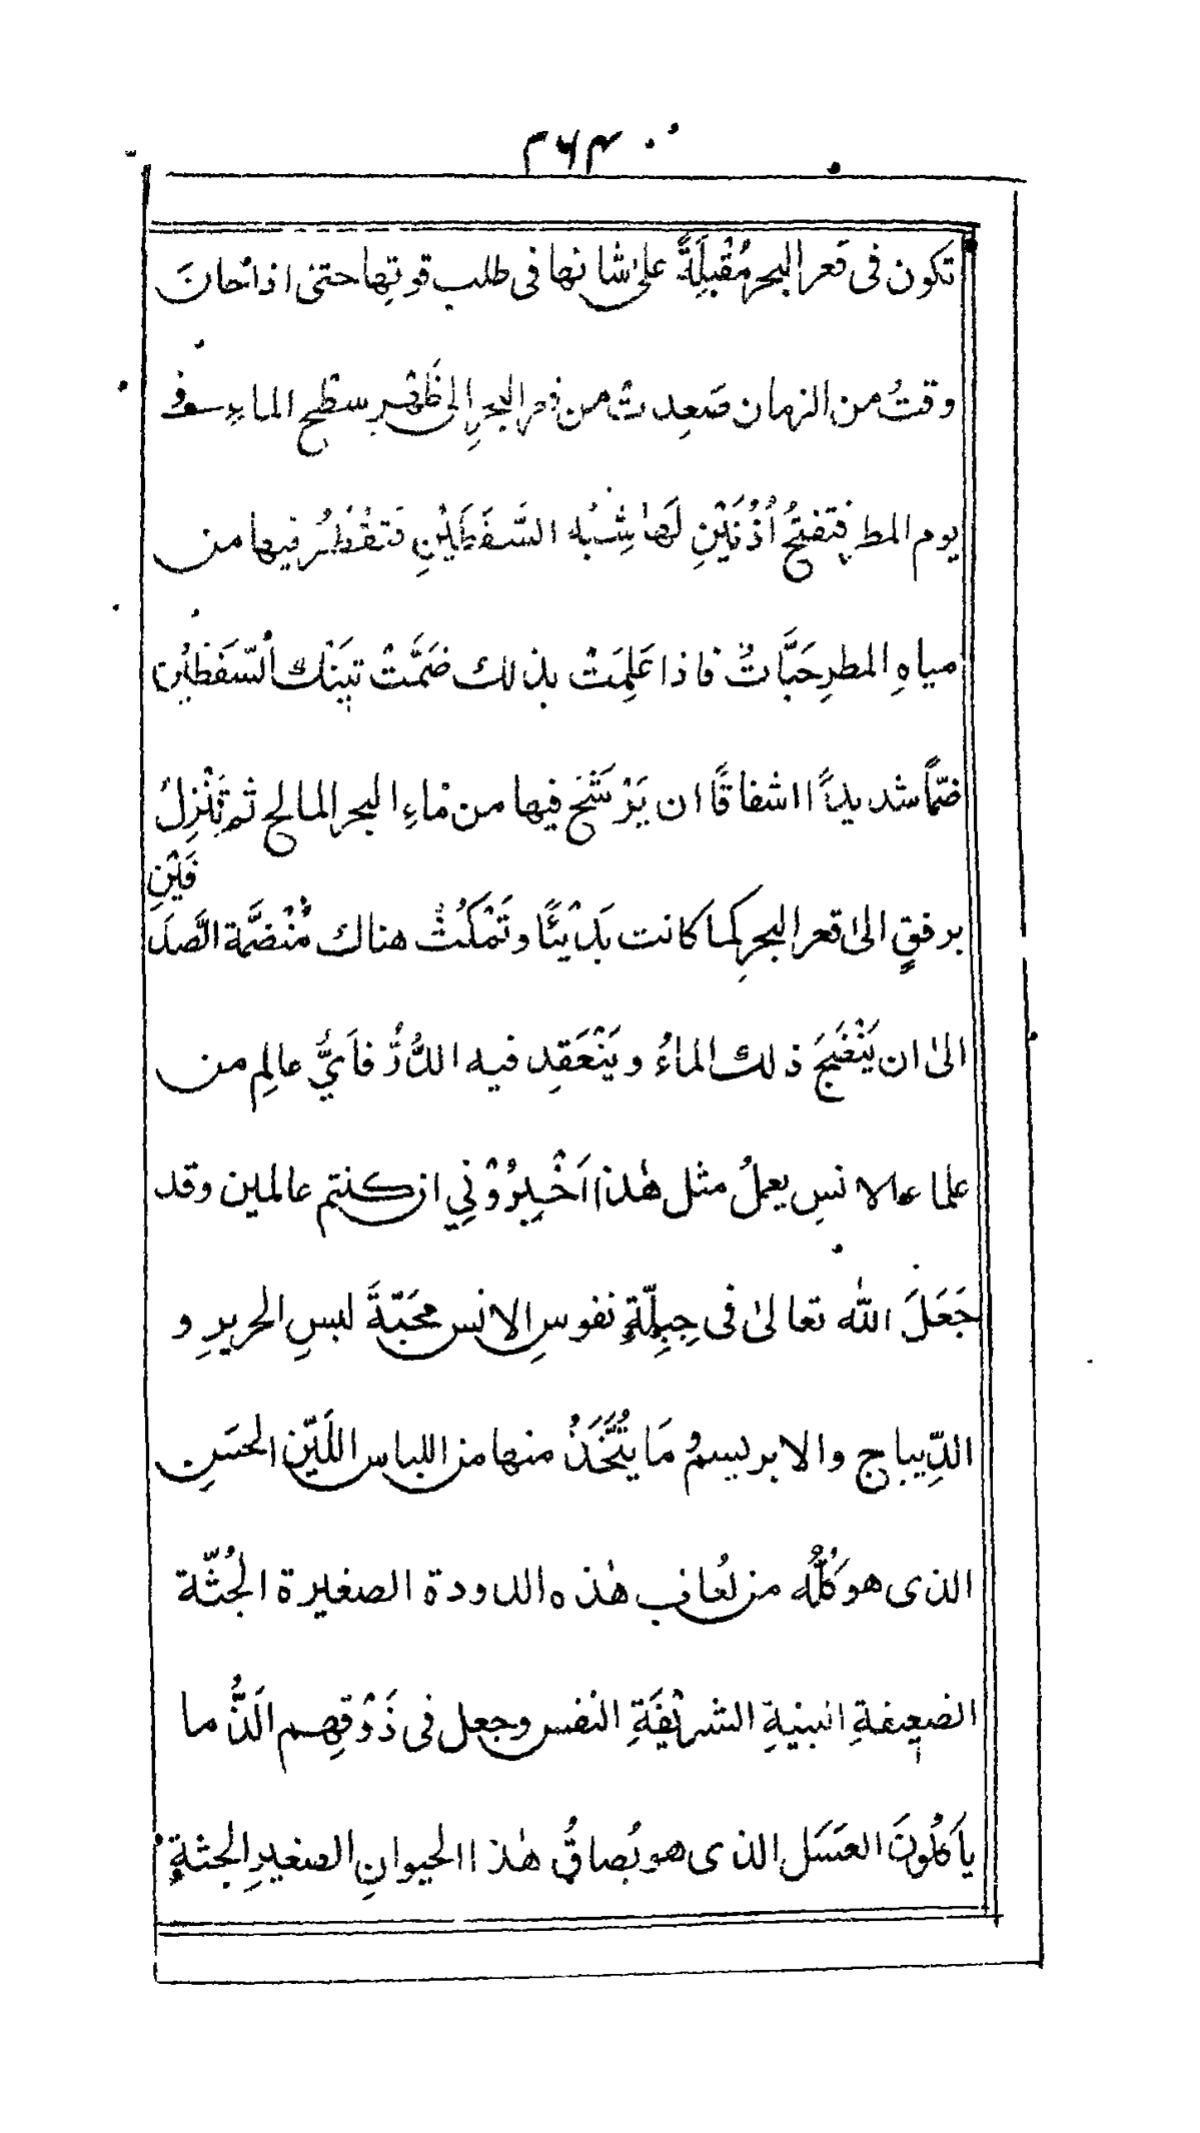 ٣٦٤
تكون فى قعر البحر مُقْبِلَةً على شانها فى طلب قوتِها حتى اذا حانَ
وقتُ من الزمان صَعِدتْ من قعر البحرِ الى ظَهْرِ سطْحِ الماءِ فى
يوم المطر فتفتحُ اُذُنَيْنِ لَها شِبْهُ السَّفَطَيْنِ فَتقْطُرُ فيها من
مياهِ المطرِ حَبَّاتٌ فاذا عَلِمَتْ بذلك ضَمَّتْ تَيْنَك السَّفَطَيْنِ
ضمّاً شديداً اشفاقًا ان يَرْشَحَ فيها من ماءِ البحر المالح ثم تَنْزِلُ
برفقٍ الى قعر البحرِ كما كانت بَدْيئًا وتَمْكُثُ هناك مُنْضَمَّة الصَّدَ
فَيْنِ
الىٰ ان يَنْضَجَ ذلك الماءُ ويَنْعَقِد فيه الدُّرُّ فاَيُّ عالِمٍ من
علماء الانسِ يعملُ مثل هٰذا اَخْبِرُوْنِي ان كنتم عالمين وقد
جَعَلَ اللّٰه تعالىٰ فى جِبِلَّةِ نفوسِ الانس محَبّةَ لبسِ الحريرِ و
الدِّيباج والابريسمُ مَا يُتَّخَذُ منها من اللباس اللَّيّن الحسَنِ
الذى هو كُلُّه من لُعاب هٰذه الدودة الصغيرة الجُثّة
الضعيفةِ البنيةِ الشريْفَةِ النفس وجعل فى ذَوْقِهِم اَلَذُّ ما
يأكُلُونَ العَسَل الذى هو بُصاقُ هٰذا الحيوانِ الصغيرِ الجثةِ